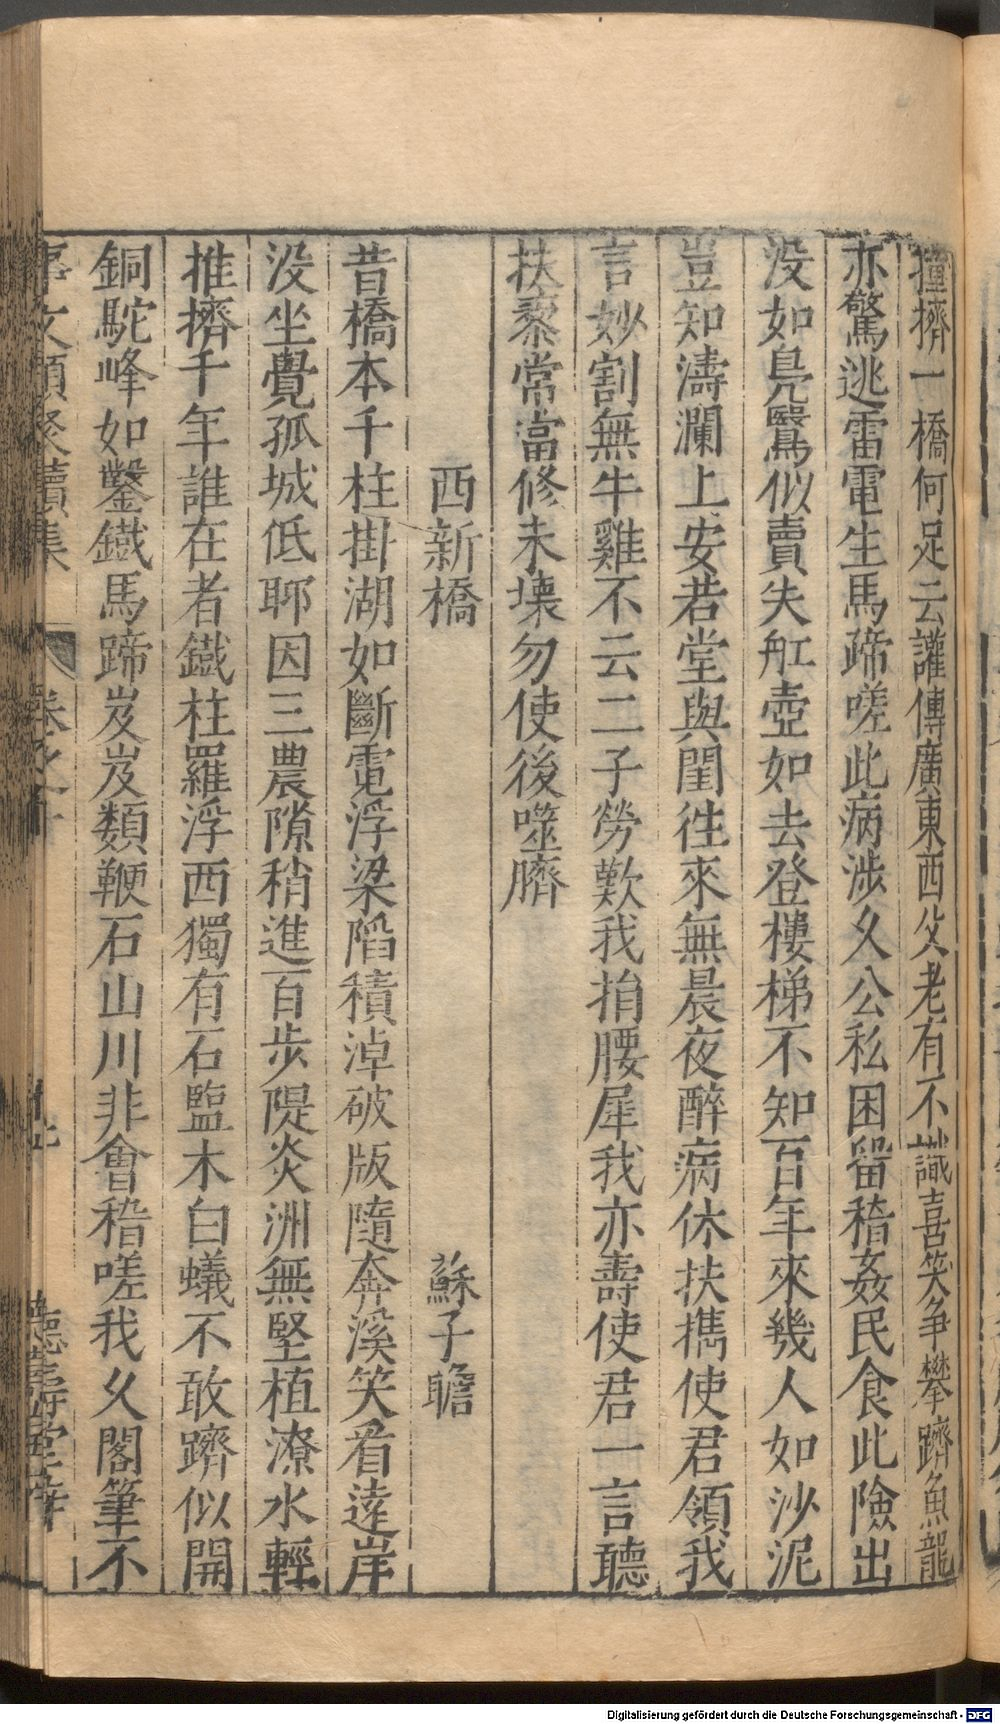 撞擠一橋何足云讙傳廣東西父老有不識喜笑争攀躋魚龍
亦驚逃雷電生馬蹄嗟此病涉久公私困留稽姦民食此險出
没如鳧鷖似賣失舡壺如去登樓梯不知百年來幾人如沙泥
豈知濤瀾上安若堂與閨徃來無晨夜醉病休扶携使君領我
言妙割無牛雞不云二子勞歎我捐腰犀我亦壽使君一言聽
扶藜常當修未壊勿使後噬臍
西新橋 蘇子瞻
昔橋本千柱掛湖如斷霓浮梁陷積淖破版隨奔溪笑看遠岸
没坐覺孤城低耶因三農隙稍進百步隄炎洲無堅植潦水輕
推擠千年誰在者鐵柱羅浮西獨有石鹽木白蟻不敢躋似開
銅駝峰如鑿鐵馬蹄岌岌類鞭石山川非會稽嗟我乆閣筆不
事文類聚續集 卷之十
Digitalisierung gefördert durch die Deutsche Forschungsgemeinschaft - DFG